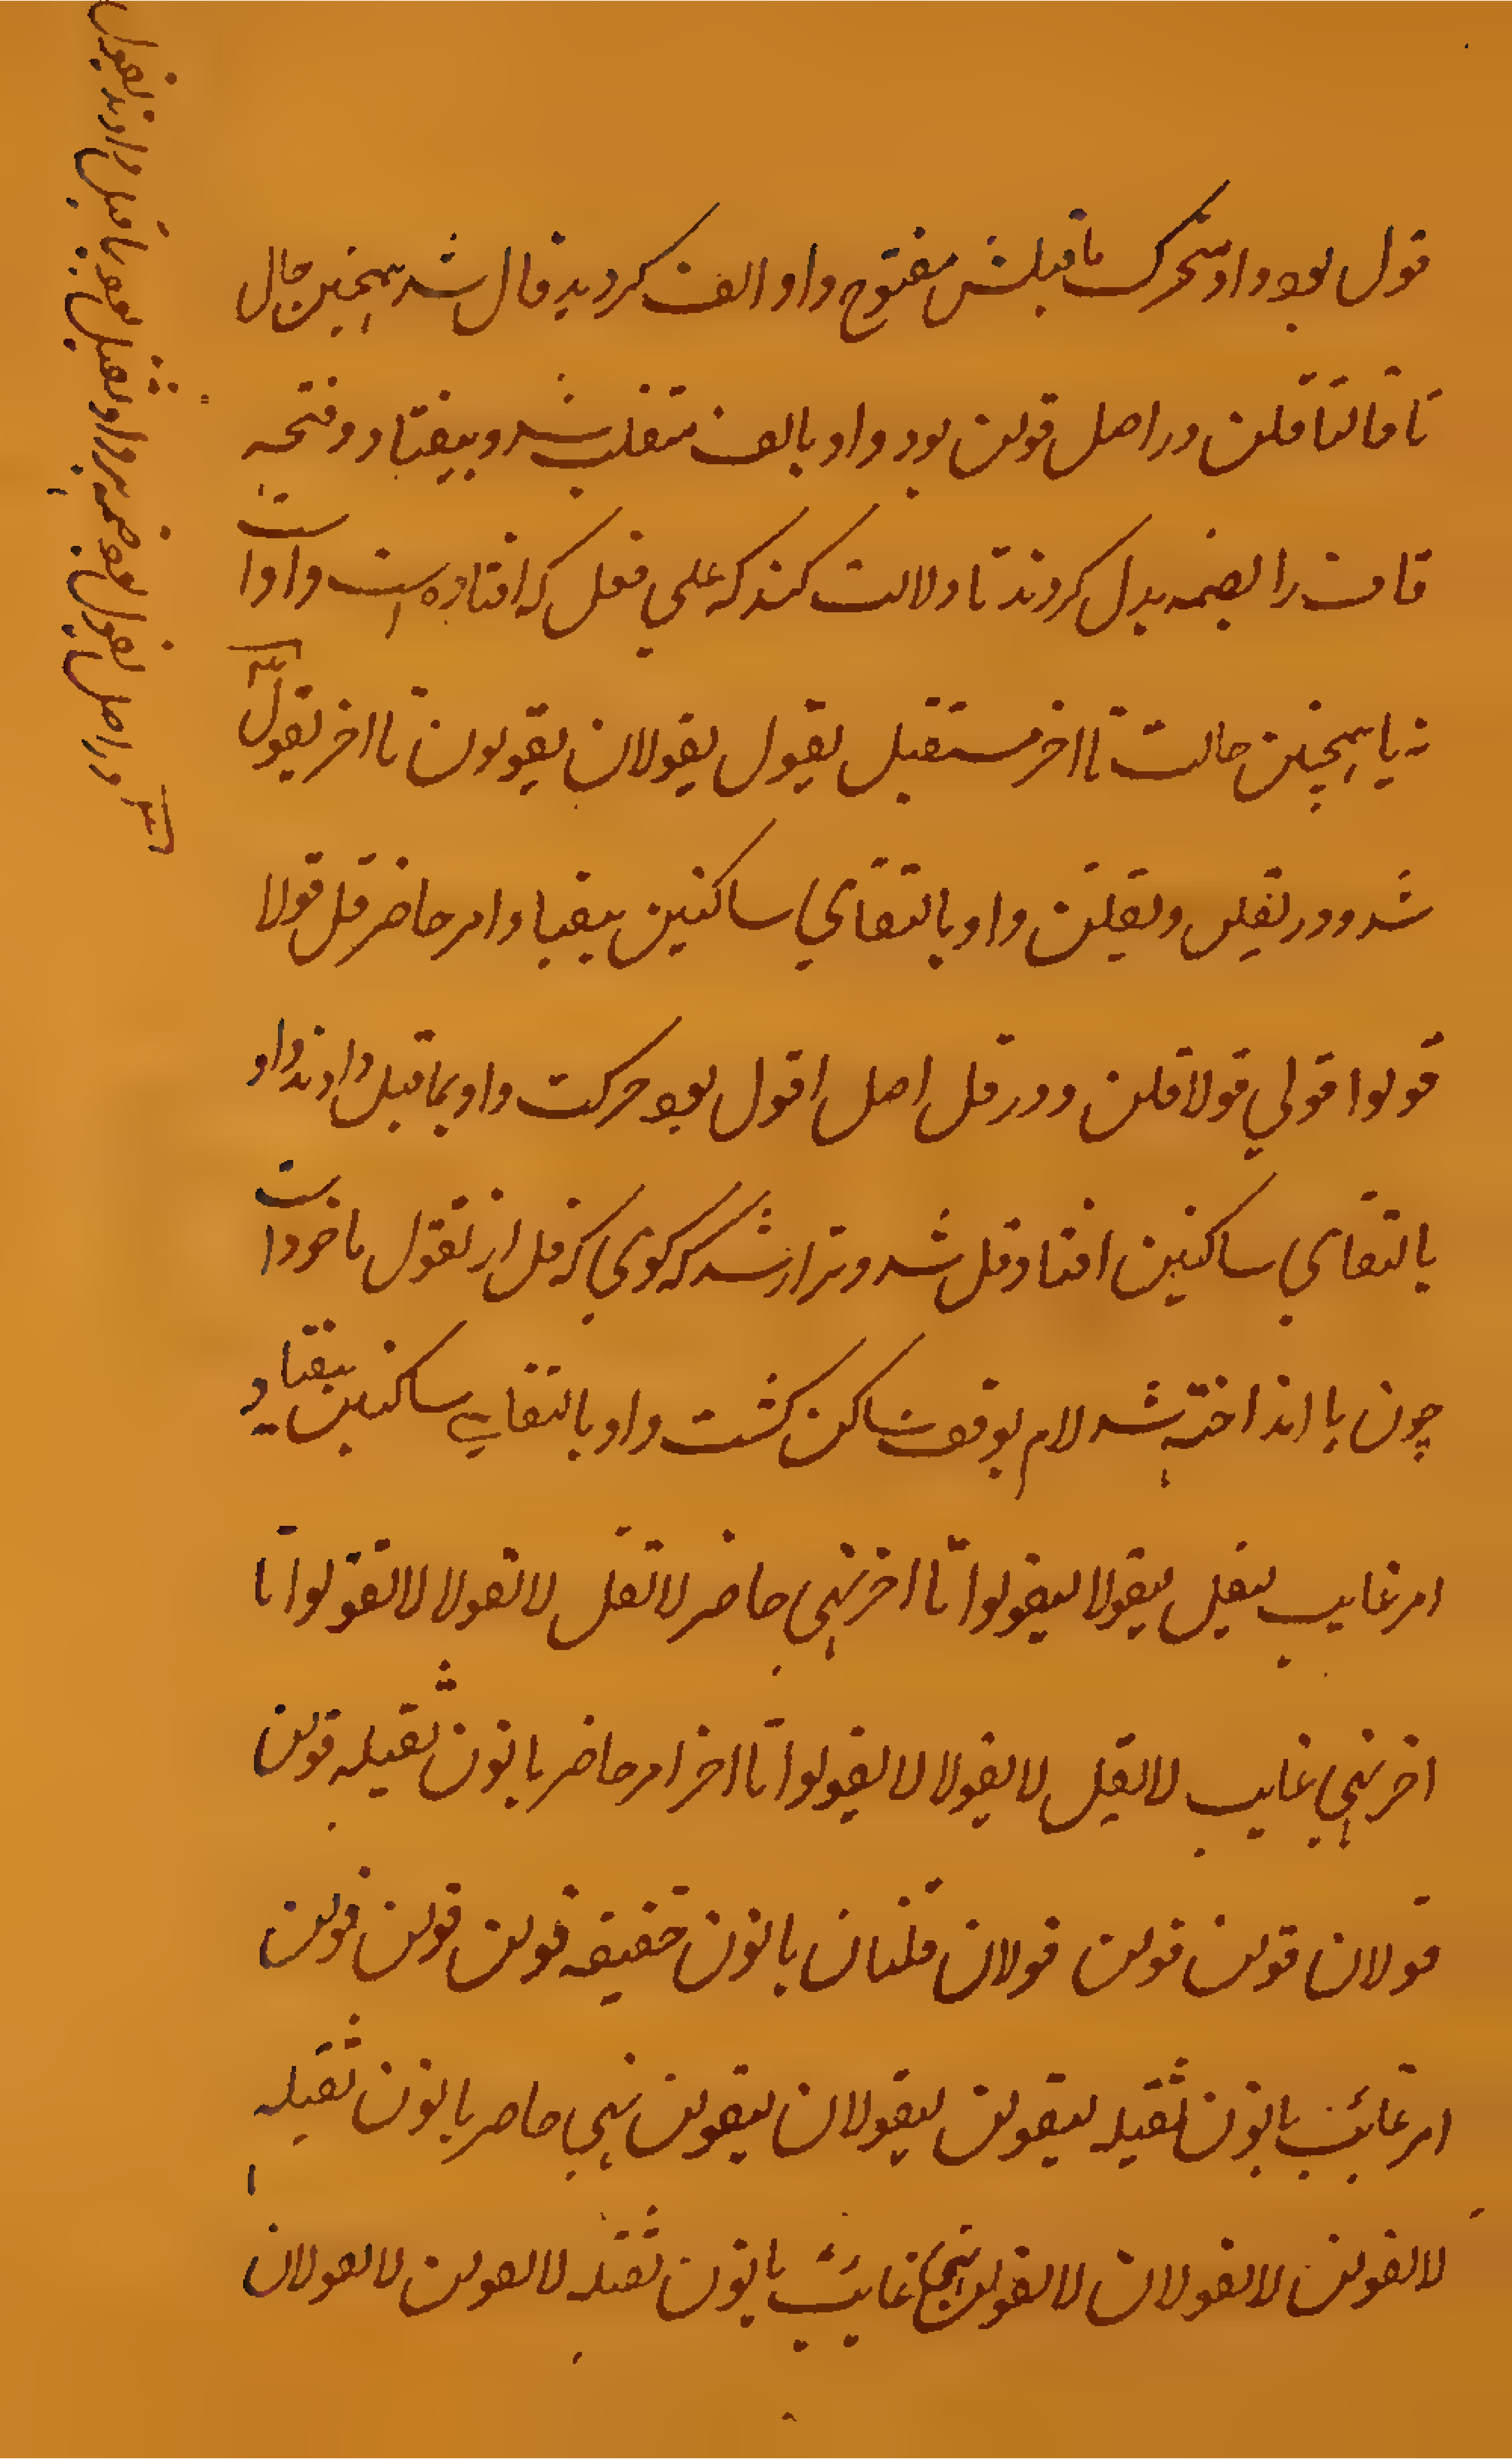 قول بود واو متحرک ماقبلش مفتوح واو الف کردید قال شد همچنین حال
تا قالتا قلن در اصل قولن بود واو بالف منقلب شد و بیفتاد و فتحه
قاف را بضمه بدل کردند تا دلالت کند که علی فعل که افتاده است واو است
نه یا همچنین حالت تا اخر مستقبل یقول یقولان یقولون تا اخر یقول
شد و در یقلن و تقلن واو بالتقای ساکنین بیفتاد امر حاضر قل قولا
قولوا قولی قولا قلن و در قل اصل اقول بود حرکت واو بماقبل دادند واو
بالتقای ساکنین افتاد قل شد و ترارشد که کوی که قل از تقول ماخود است
چون یا انداخته شد لام بوقف ساکن کشت واو بالتقای ساکنین بیفتاد
امر غایب لیقل لیقولا لیقولوا تا اخر نهی حاضر لا تقل لا تقولا لا تقولوا تا
اخر نهی غایب لا یقل لا یقولا لا یقولوا تا اخر امر حاضر با نون ثقیله قولن
قولان قولن قولن قولان قلنان با نون خفیفه قولن قولن قولن
امر غائب با نون ثقیله لیقولن لیقولان لیقولن نهی حاضر با نون ثقیله
لا تقولن لا تقولان لا تقولن نهی غایب با نون ثقیله لا یقولن لا یقولان
در اصل یقول بود ضمه بر واو ثقیل بود بماقبل دادند یقول